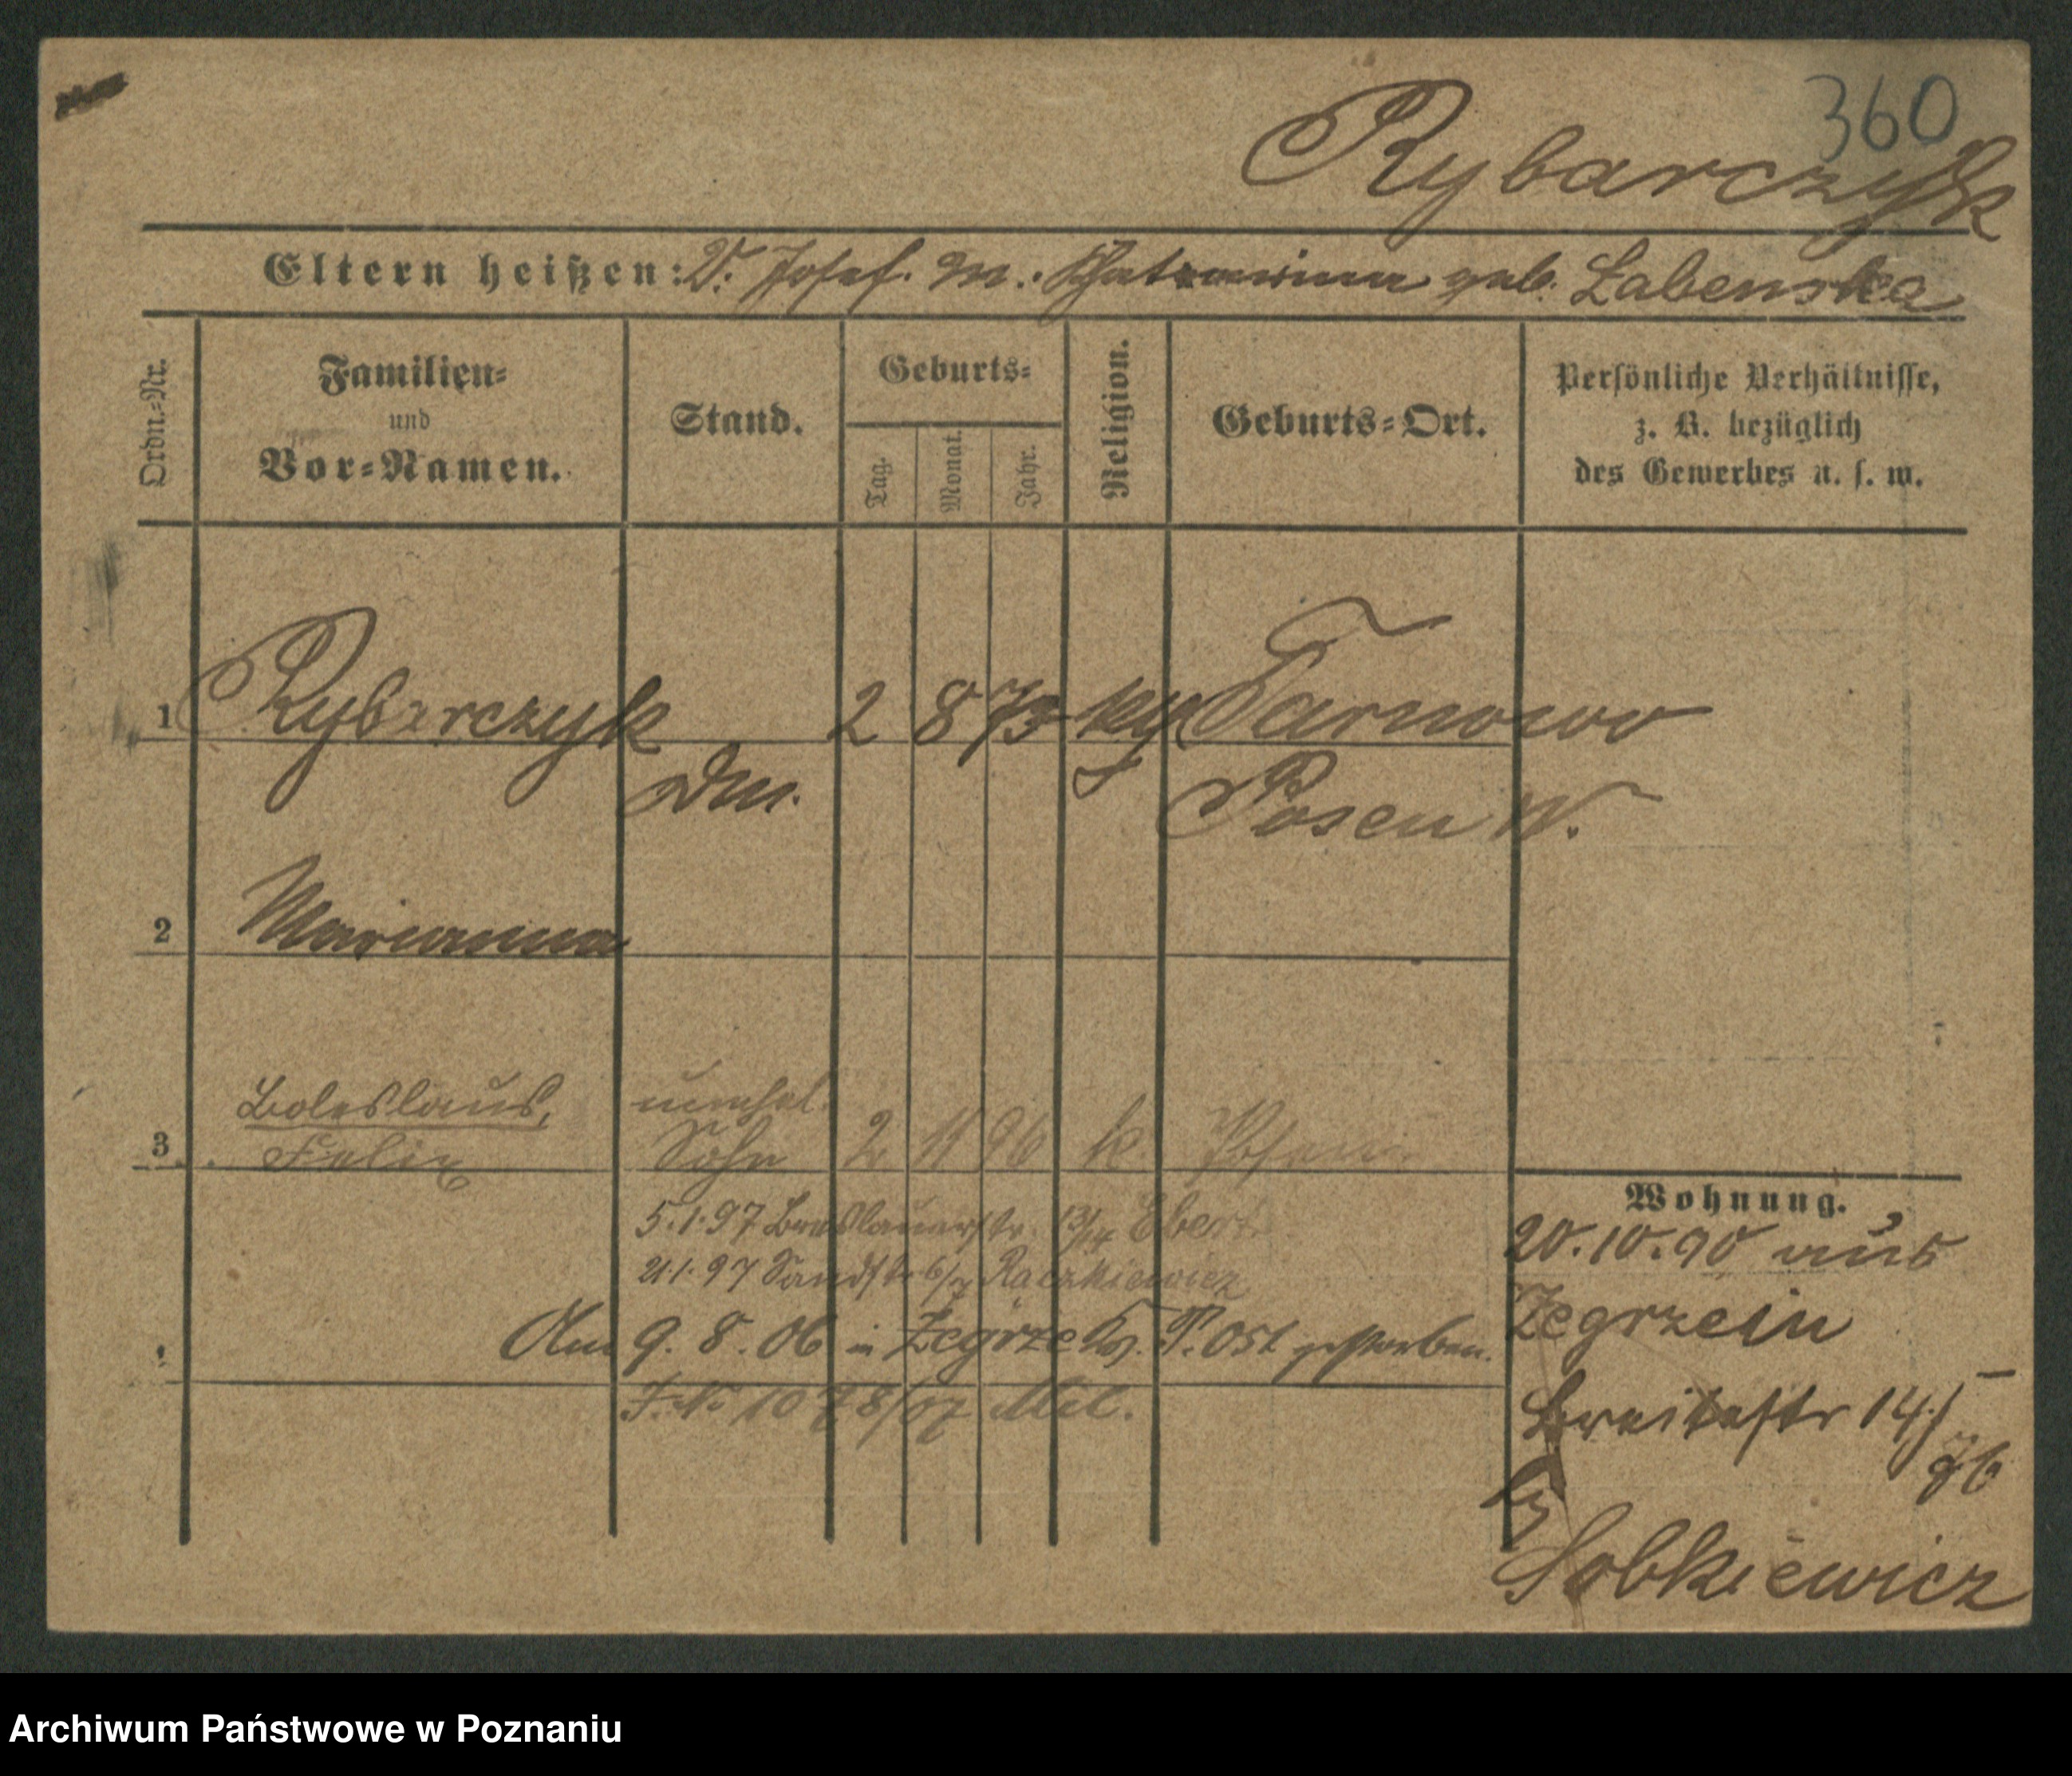 360
Rybarczyk
Eltern heißen: V. Josef. M. geb. Labenska
Ordn.-Nr.
Familien-
und
Vor-Namen.
Stand.
Geburts-
Tag.
Monat.
Jahr.
Religion.
Geburts-Ort.
Persönliche Verhältnisse,
z. B. bezüglich
des Gewerbes u. s. w.
1 Rybarczyk 2 8 73 Tarnowo
Dm. Posen W.
2 Marianna
Boleslaus, unehel.
3 Felix Sohn 2 11 96 k. Posen
Wohnung.
20.10.90 aus
Zegrze in
Breitestr 14
Sobkiewicz
5.1.97 Breslauerstr. 13/14 Ebert
21.1.97 Sandstr 6/7 Raczkiewicz
Am 9. 8. 06 in Zegrze Kr. P. Ost gestorben.
J. No 1078/07 Mel.
Archiwum Państwowe w Poznaniu